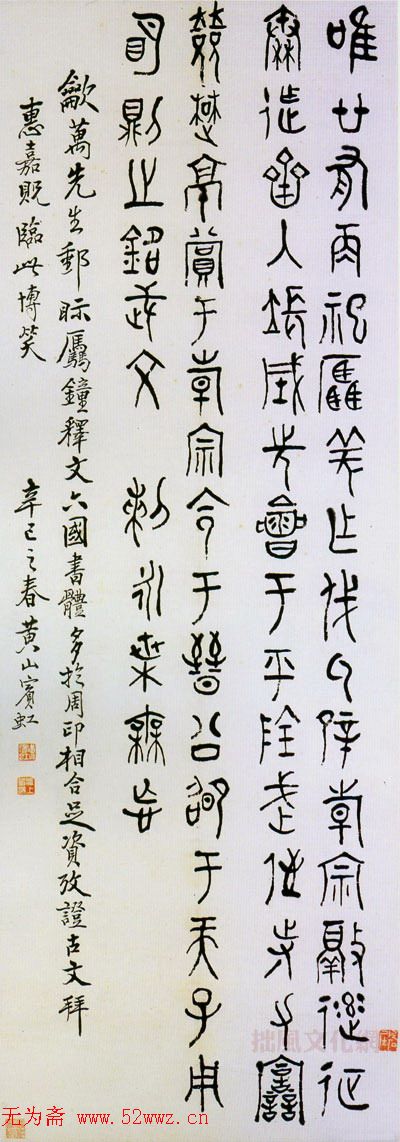 唯廿又再祀驫羌乍伐氒辟韓宗征
秦迮齊入張城先會于平陰武侄寺力譶
敓楚京賞于韓宗令于晉公邵于天子用
明則之銘武文 剌永枼毋忘
萬先生郵眎驫鐘釋文六國書體多於周印相合足資攷證古文拜
惠嘉貺臨此博笑 辛巳之春黃山賓虹
拙風文化網
无为斋 www.52wwz.cn